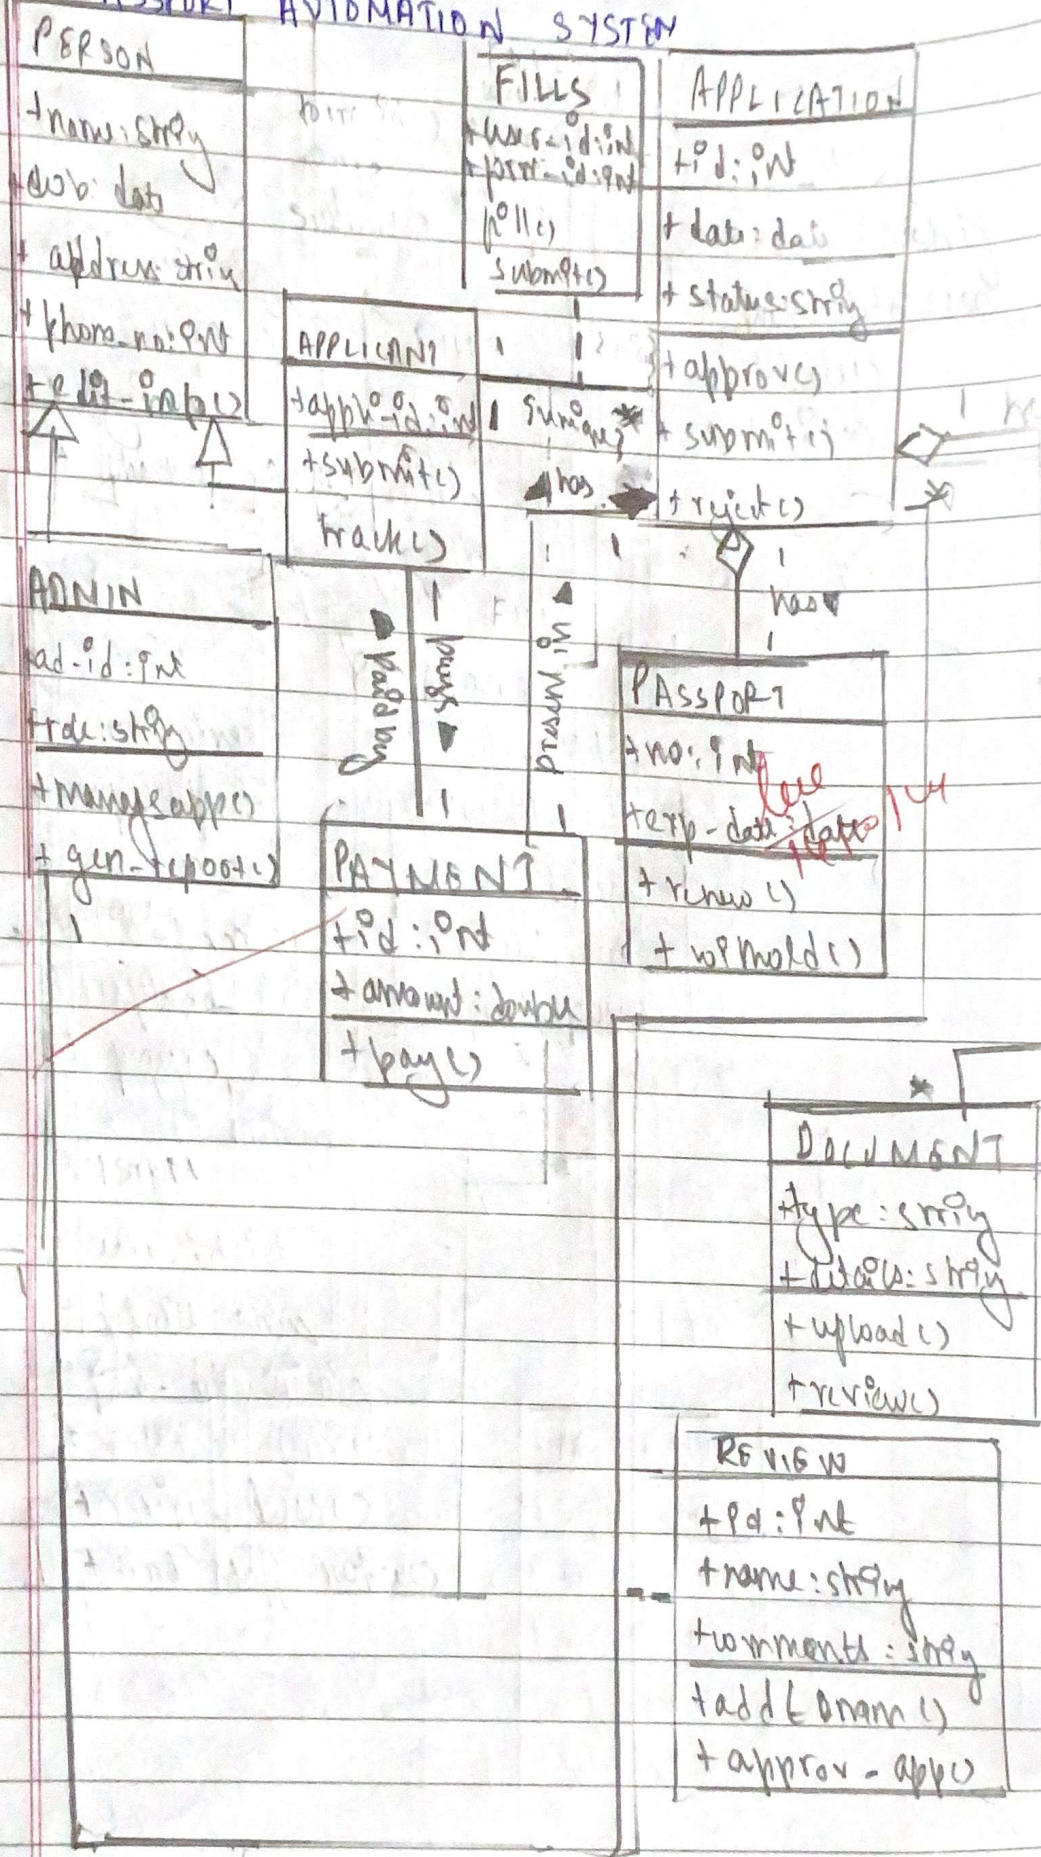 AUTOMATION SYSTEM
PERSON
+name:string
+dob: date
+ address: string
+ phone_no: int
+edit_info()
FILLS
+user-id:int
+form-id:int
fill()
submit()
APPLICATION
+id: int
+ date: date
+ status:string
+approv()
+ submit()
+ reject()
APPLICANT
+appli-id:int
+submit()
track()
1
1
1
*
has
1
1
1
has
1
*
1
ADMIN
ad-id:int
+role:string
+manage app()
+ gen-report()
1
paid by
1
pays
1
present in
1
PASSPORT
+no: int
+exp-date: date
+ renew()
+ withhold()
PAYMENT
+id: int
+ amount: double
+pay()
*
DOCUMENT
+type: string
+details: string
+upload()
+review()
REVIEW
+id: int
+name: string
+comments: string
+approv-app()